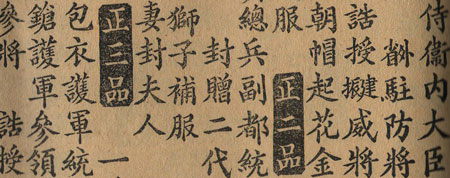 侍衛內大臣
駐防將
誥授威將
朝帽起花金
服 正二品
總兵副都統
封贈二代
獅子補服
妻封夫人
正三品 一
包衣護軍統
鎗護軍參領
參將 誥授